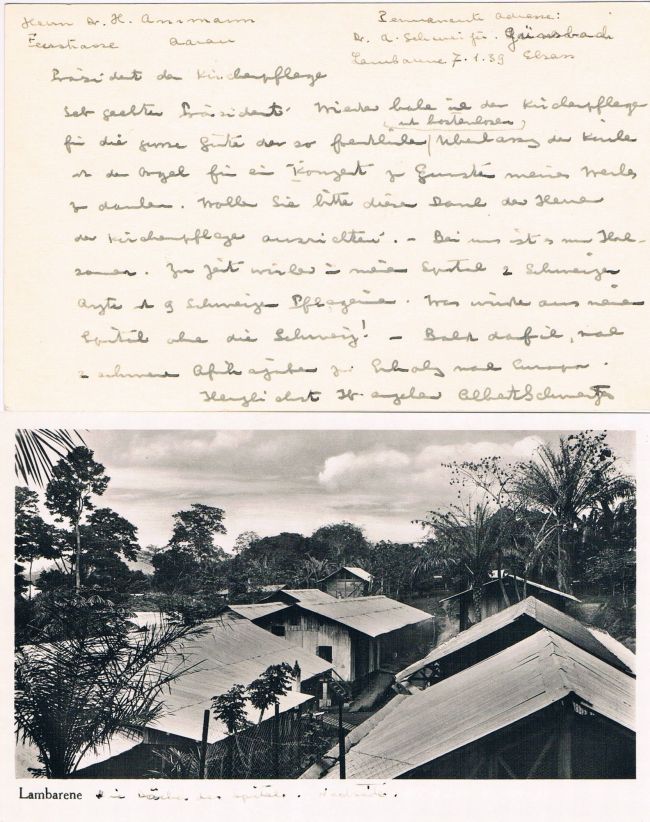 Herrn Dr. H.
Aarau
Permanente Adresse:
Dr. A. Schweitzer. Günsbach
Lambarene 7.1.39 Elsass
Präsident der Kirchenpflege
Sehr geehrter Präsident. Wieder habe ich der Kirchenpflege
und kostenlosen
für die grosse Güte der so freundlichen Überlassung der Kirche
und der Orgel für ein Konzert zu Gunsten meines Werkes
zu danken. Wollen Sie bitte diesen Dank den Herren
der Kirchenpflege ausrichten. – Bei uns ist
Zur Zeit in meinem Spital 2 Schweizer
Ärzte und 9 Schweizer Pflegerinnen. Was würde aus meinem
Spital ohne die Schweiz! – Bald darf ich, nach
2 schweren Afrikajahren zur Erholung nach Europa.
Herzlichst Ihr ergebener Albert Schweitzer
Lambarene Die Dächer des Spitals.